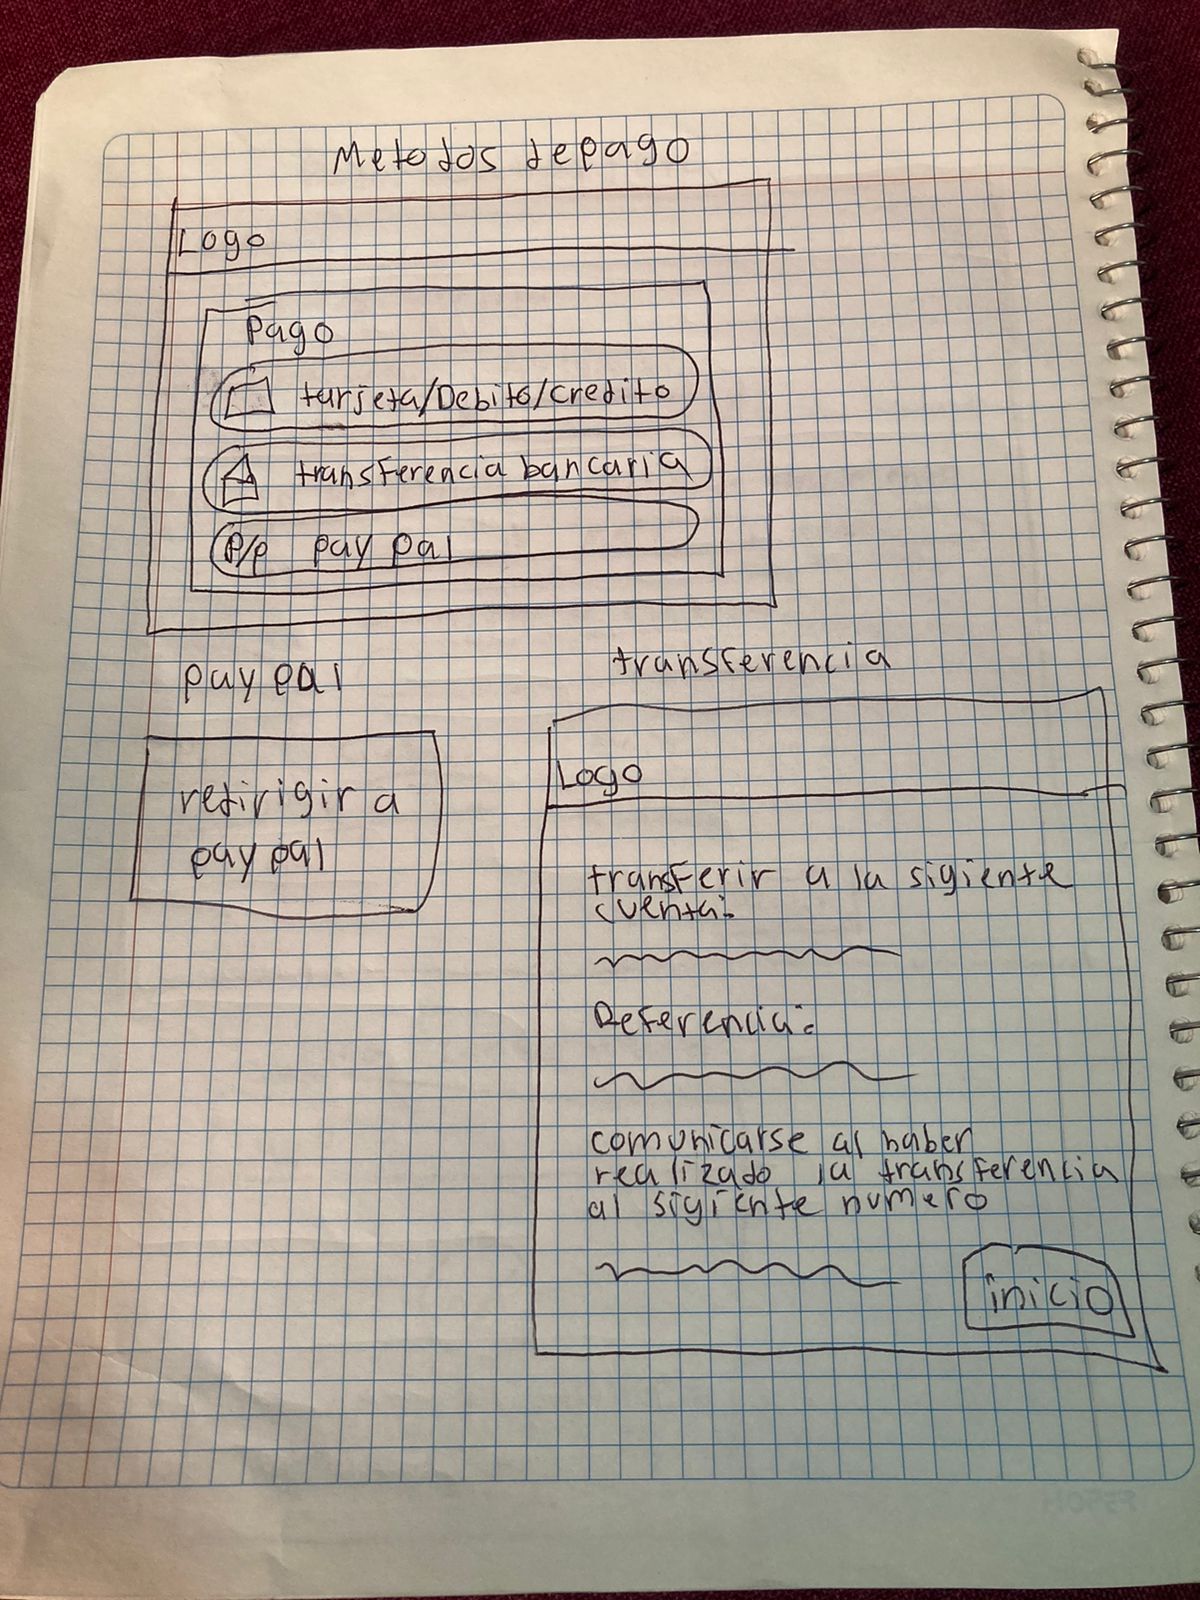 Metodos de pago
Logo
Pago
tarjeta/Debito/credito
transferencia bancaria
P/P pay pal
pay pal
redirigir a
pay pal
transferencia
Logo
transferir a la sigiente
cuenta:
Referencia:
comunicarse al haber
realizado la transferencia
al sigiente numero
inicio